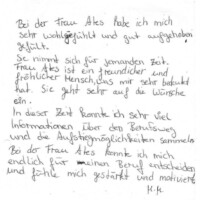 Bei der Frau Ates habe ich mich
sehr wohlgefühlt und gut aufgehoben
gefühlt.
Sie nimmt sich für jemanden Zeit.
Frau Ates ist ein freundlicher und
fröhlicher Mensch, das mir sehr
hat. Sie geht sehr auf die Wünsche
ein.
In dieser Zeit konnte ich sehr viel
Informationen über den Berufsweg
und die Aufstiegmöglichkeiten sammeln
Bei der Frau Ates konnte ich mich
endlich für meinen Beruf entscheiden
und fühle mich gestärkt und motiviert
H.K.